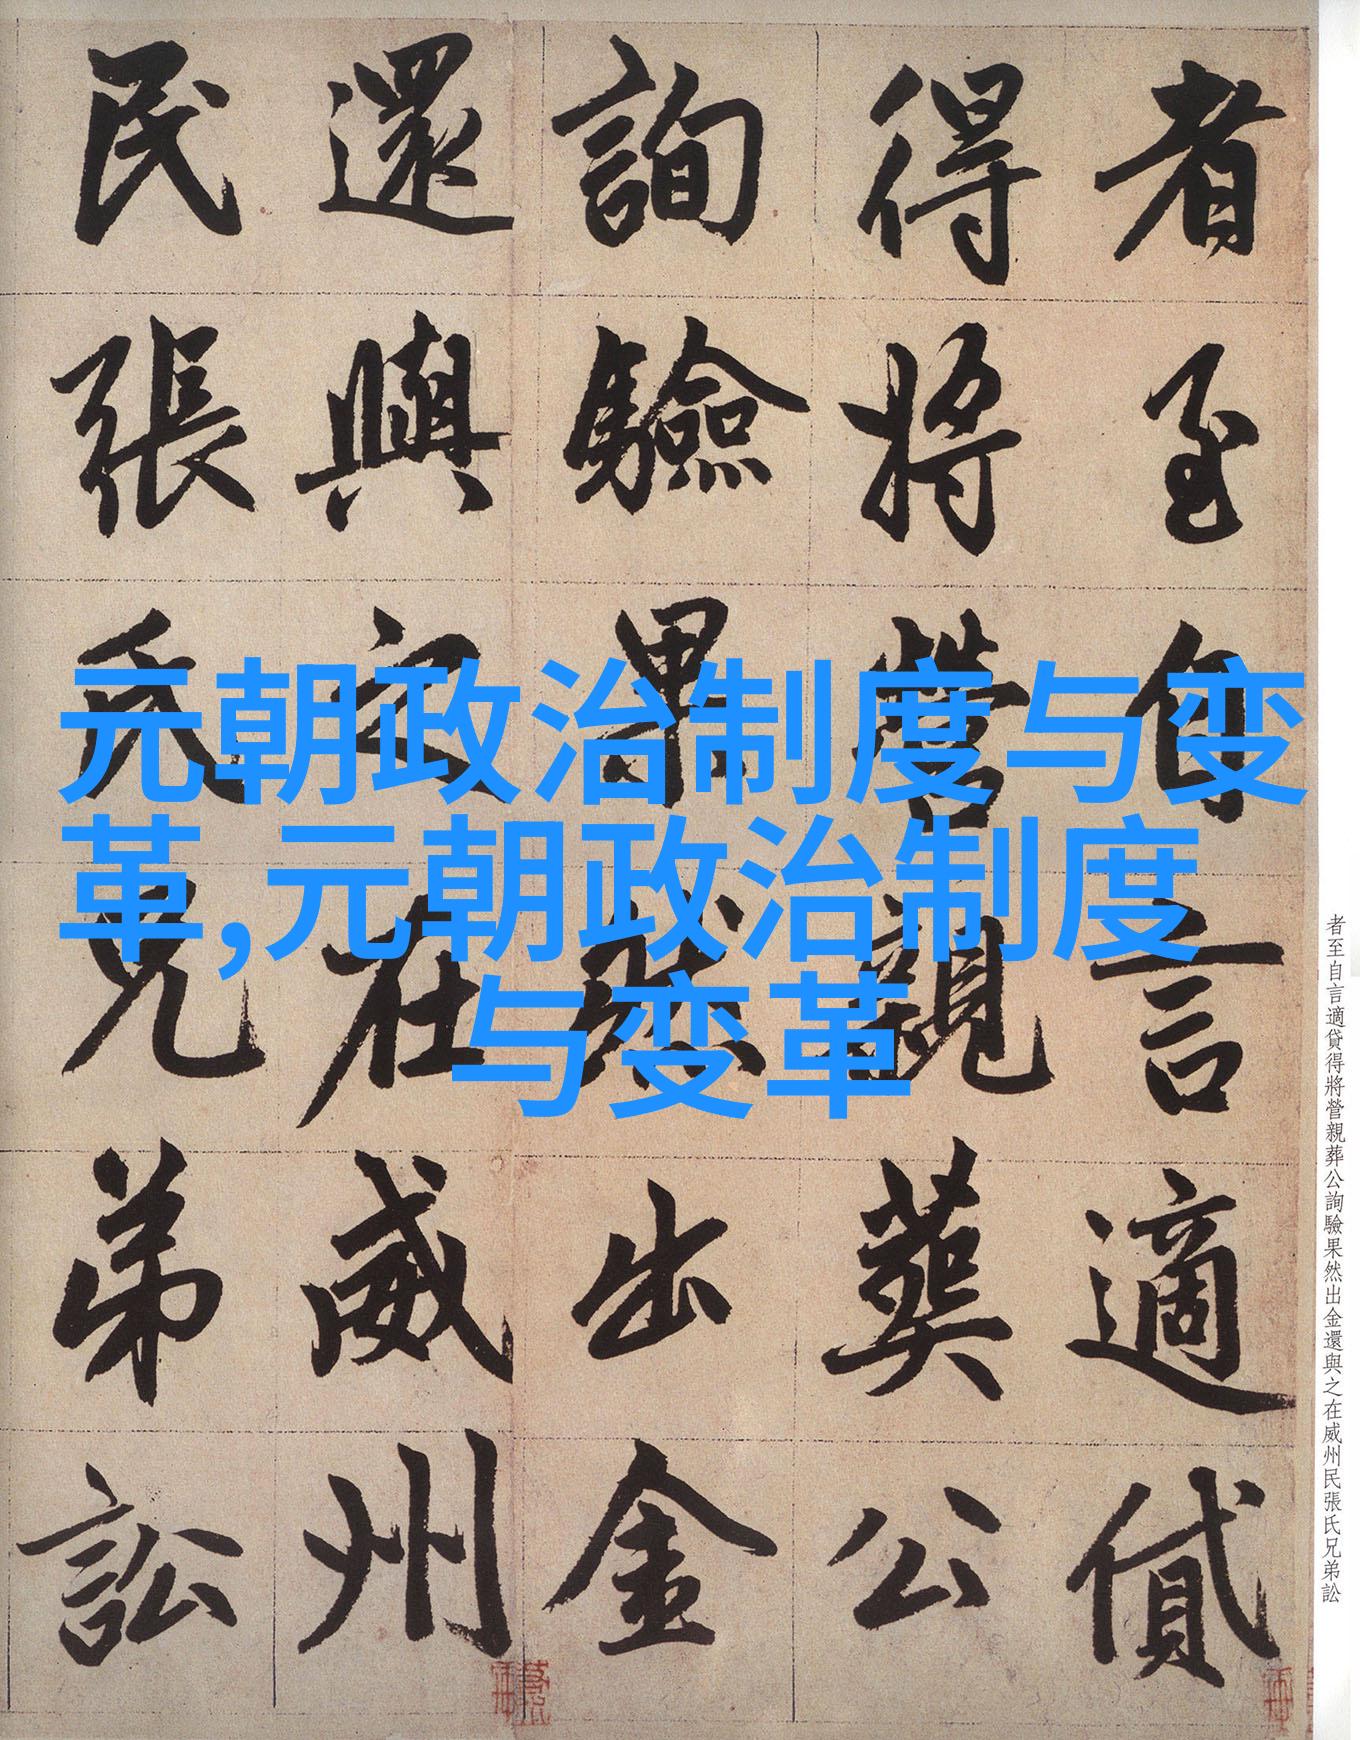 者至自言適貸
得將營親葬公
詢驗果然出金
還與之在威州
民張氏兄弟訟
元朝政治制度与变
革,元朝政治制度
与变革
者至自言適貸得將營親葬公詢驗果然出金還與之在威州民張氏兄弟訟